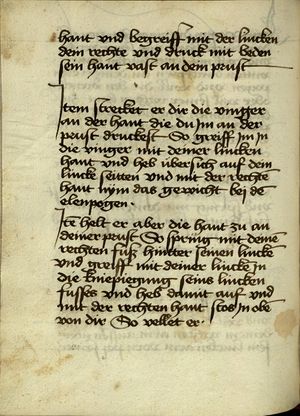 hant vnd begreiff mit der lincken
dein rechte vnd druck mit beden
sein hant vast an dein prust
Item strecket er dir die vinger
an der hant die du Im an der
prust druckest So greiff im in
die vinger mit deiner lincken
hant vnd heb übersich auf dein
lincke seitten vnd mit der rechten
hant nÿm das gewicht bei dē
elenpogen.
Itē helt er aber die hant zu an
deiner prust So spring mit deinē
rechten fuß hintter seinen linckē
vnd greiff mit deiner linckē in
die kniepiegung seins lincken
fusses vnd heb damit auf vnd
mit der rechten hant stos in obē
von dir So vellet er.